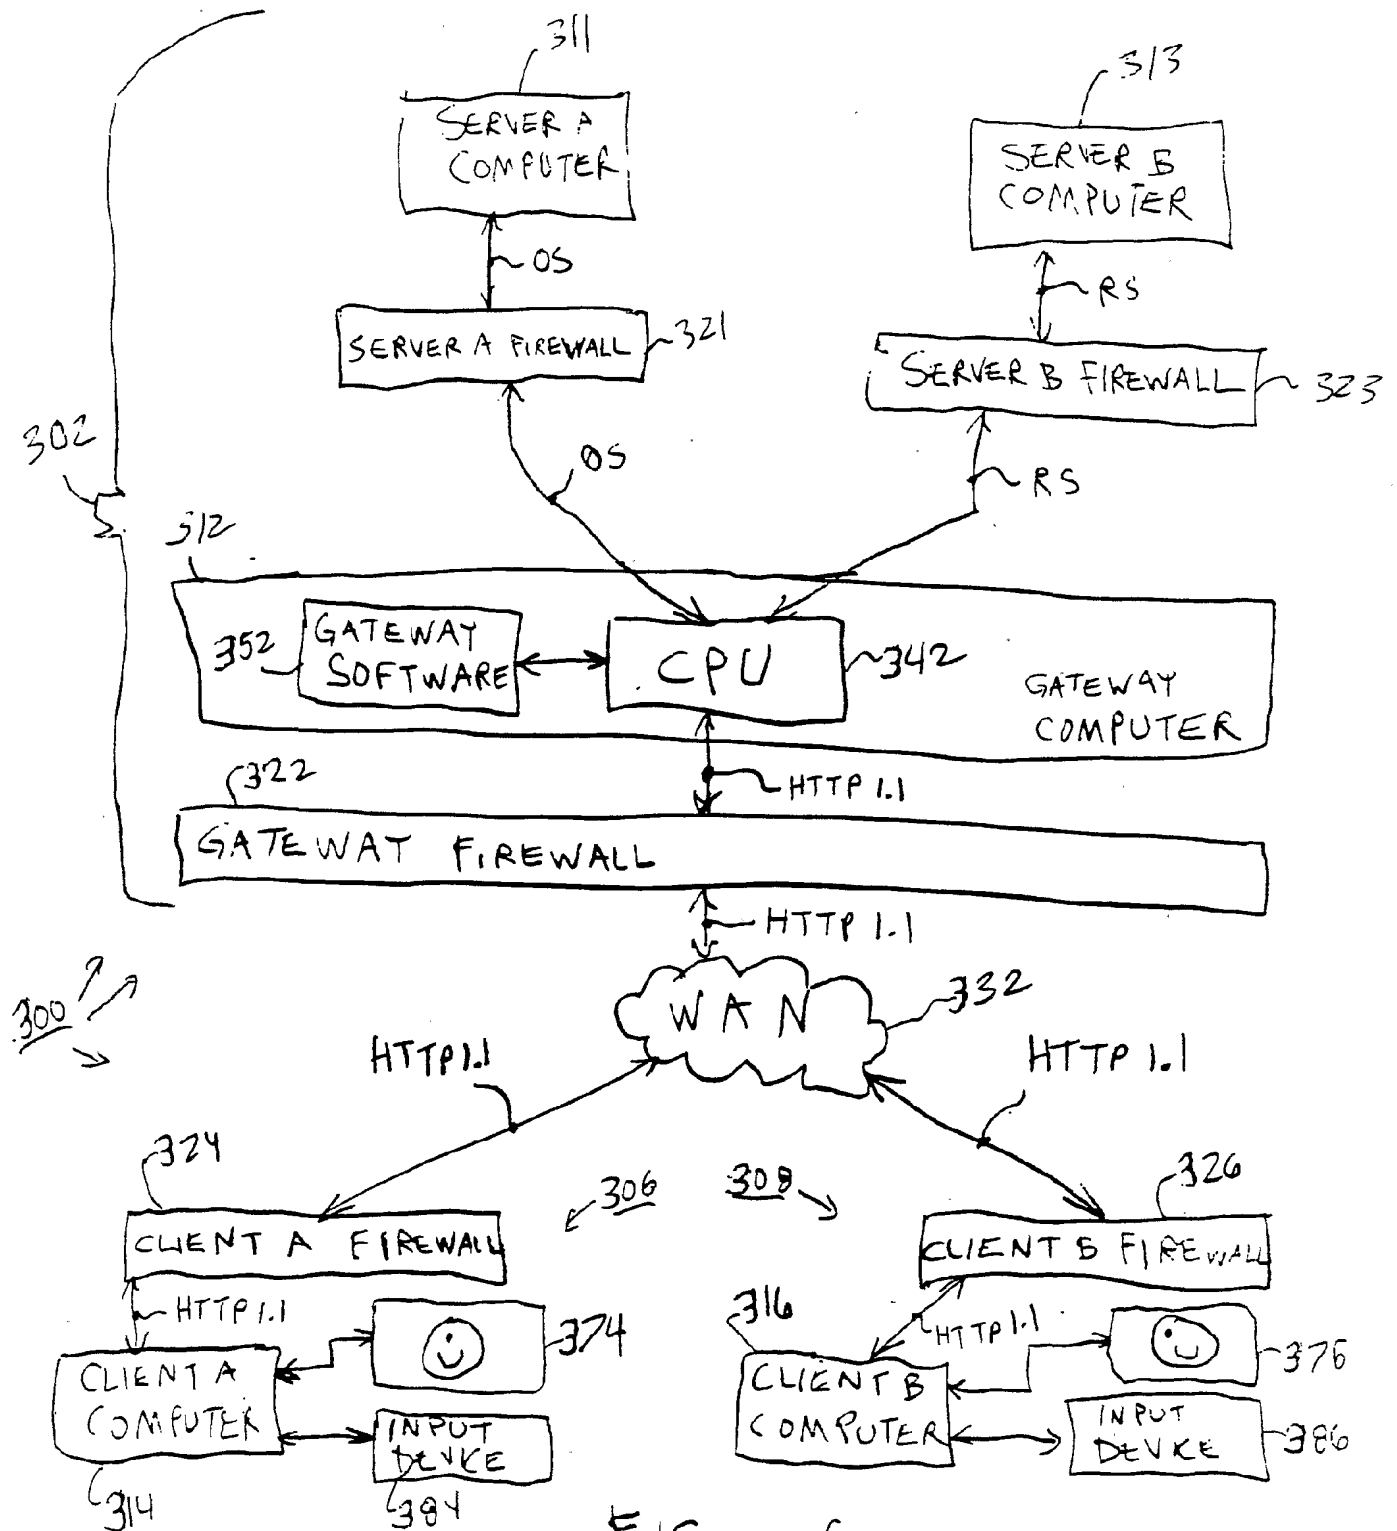 311
313
SERVER A
COMPUTER
SERVER B
COMPUTER
OS
RS
SERVER A FIREWALL
321
SERVER B FIREWALL
323
302
OS
RS
312
352
GATEWAY
SOFTWARE
CPU
342
GATEWAY
COMPUTER
322
HTTP 1.1
GATEWAY FIREWALL
HTTP 1.1
300
WAN
332
HTTP 1.1
HTTP 1.1
324
306
308
326
CLIENT A FIREWALL
CLIENT B FIREWALL
HTTP 1.1
374
316
HTTP 1.1
376
CLIENT A
COMPUTER
CLIENT B
COMPUTER
INPUT
DEVICE
INPUT
DEVICE
386
314
384